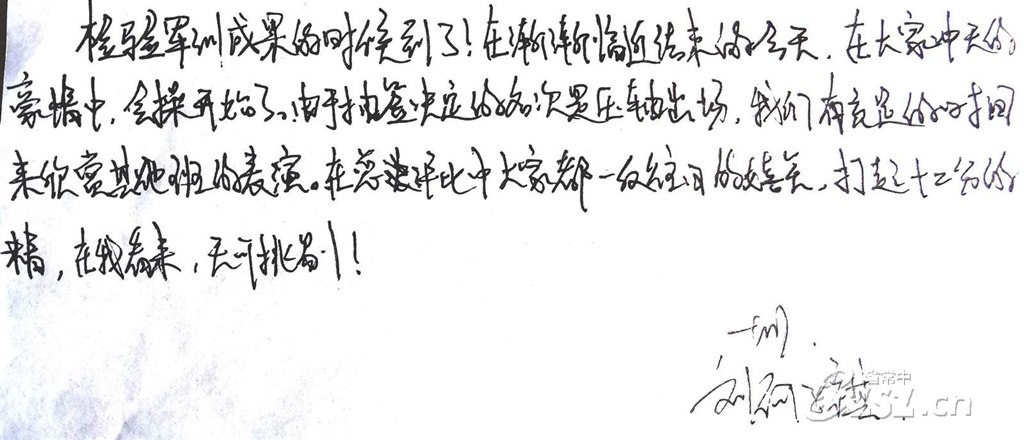 检验军训成果的时候到了！在渐渐临近结束的今天，在大家冲天的
豪情中，会操开始了。由于抽签决定的名次是压轴出场，我们有充足的时间
来欣赏其他班的表演。在评比中大家都一改往日的嬉笑，打起十二分的
精，在我看来，无可挑剔！
刘
省常中